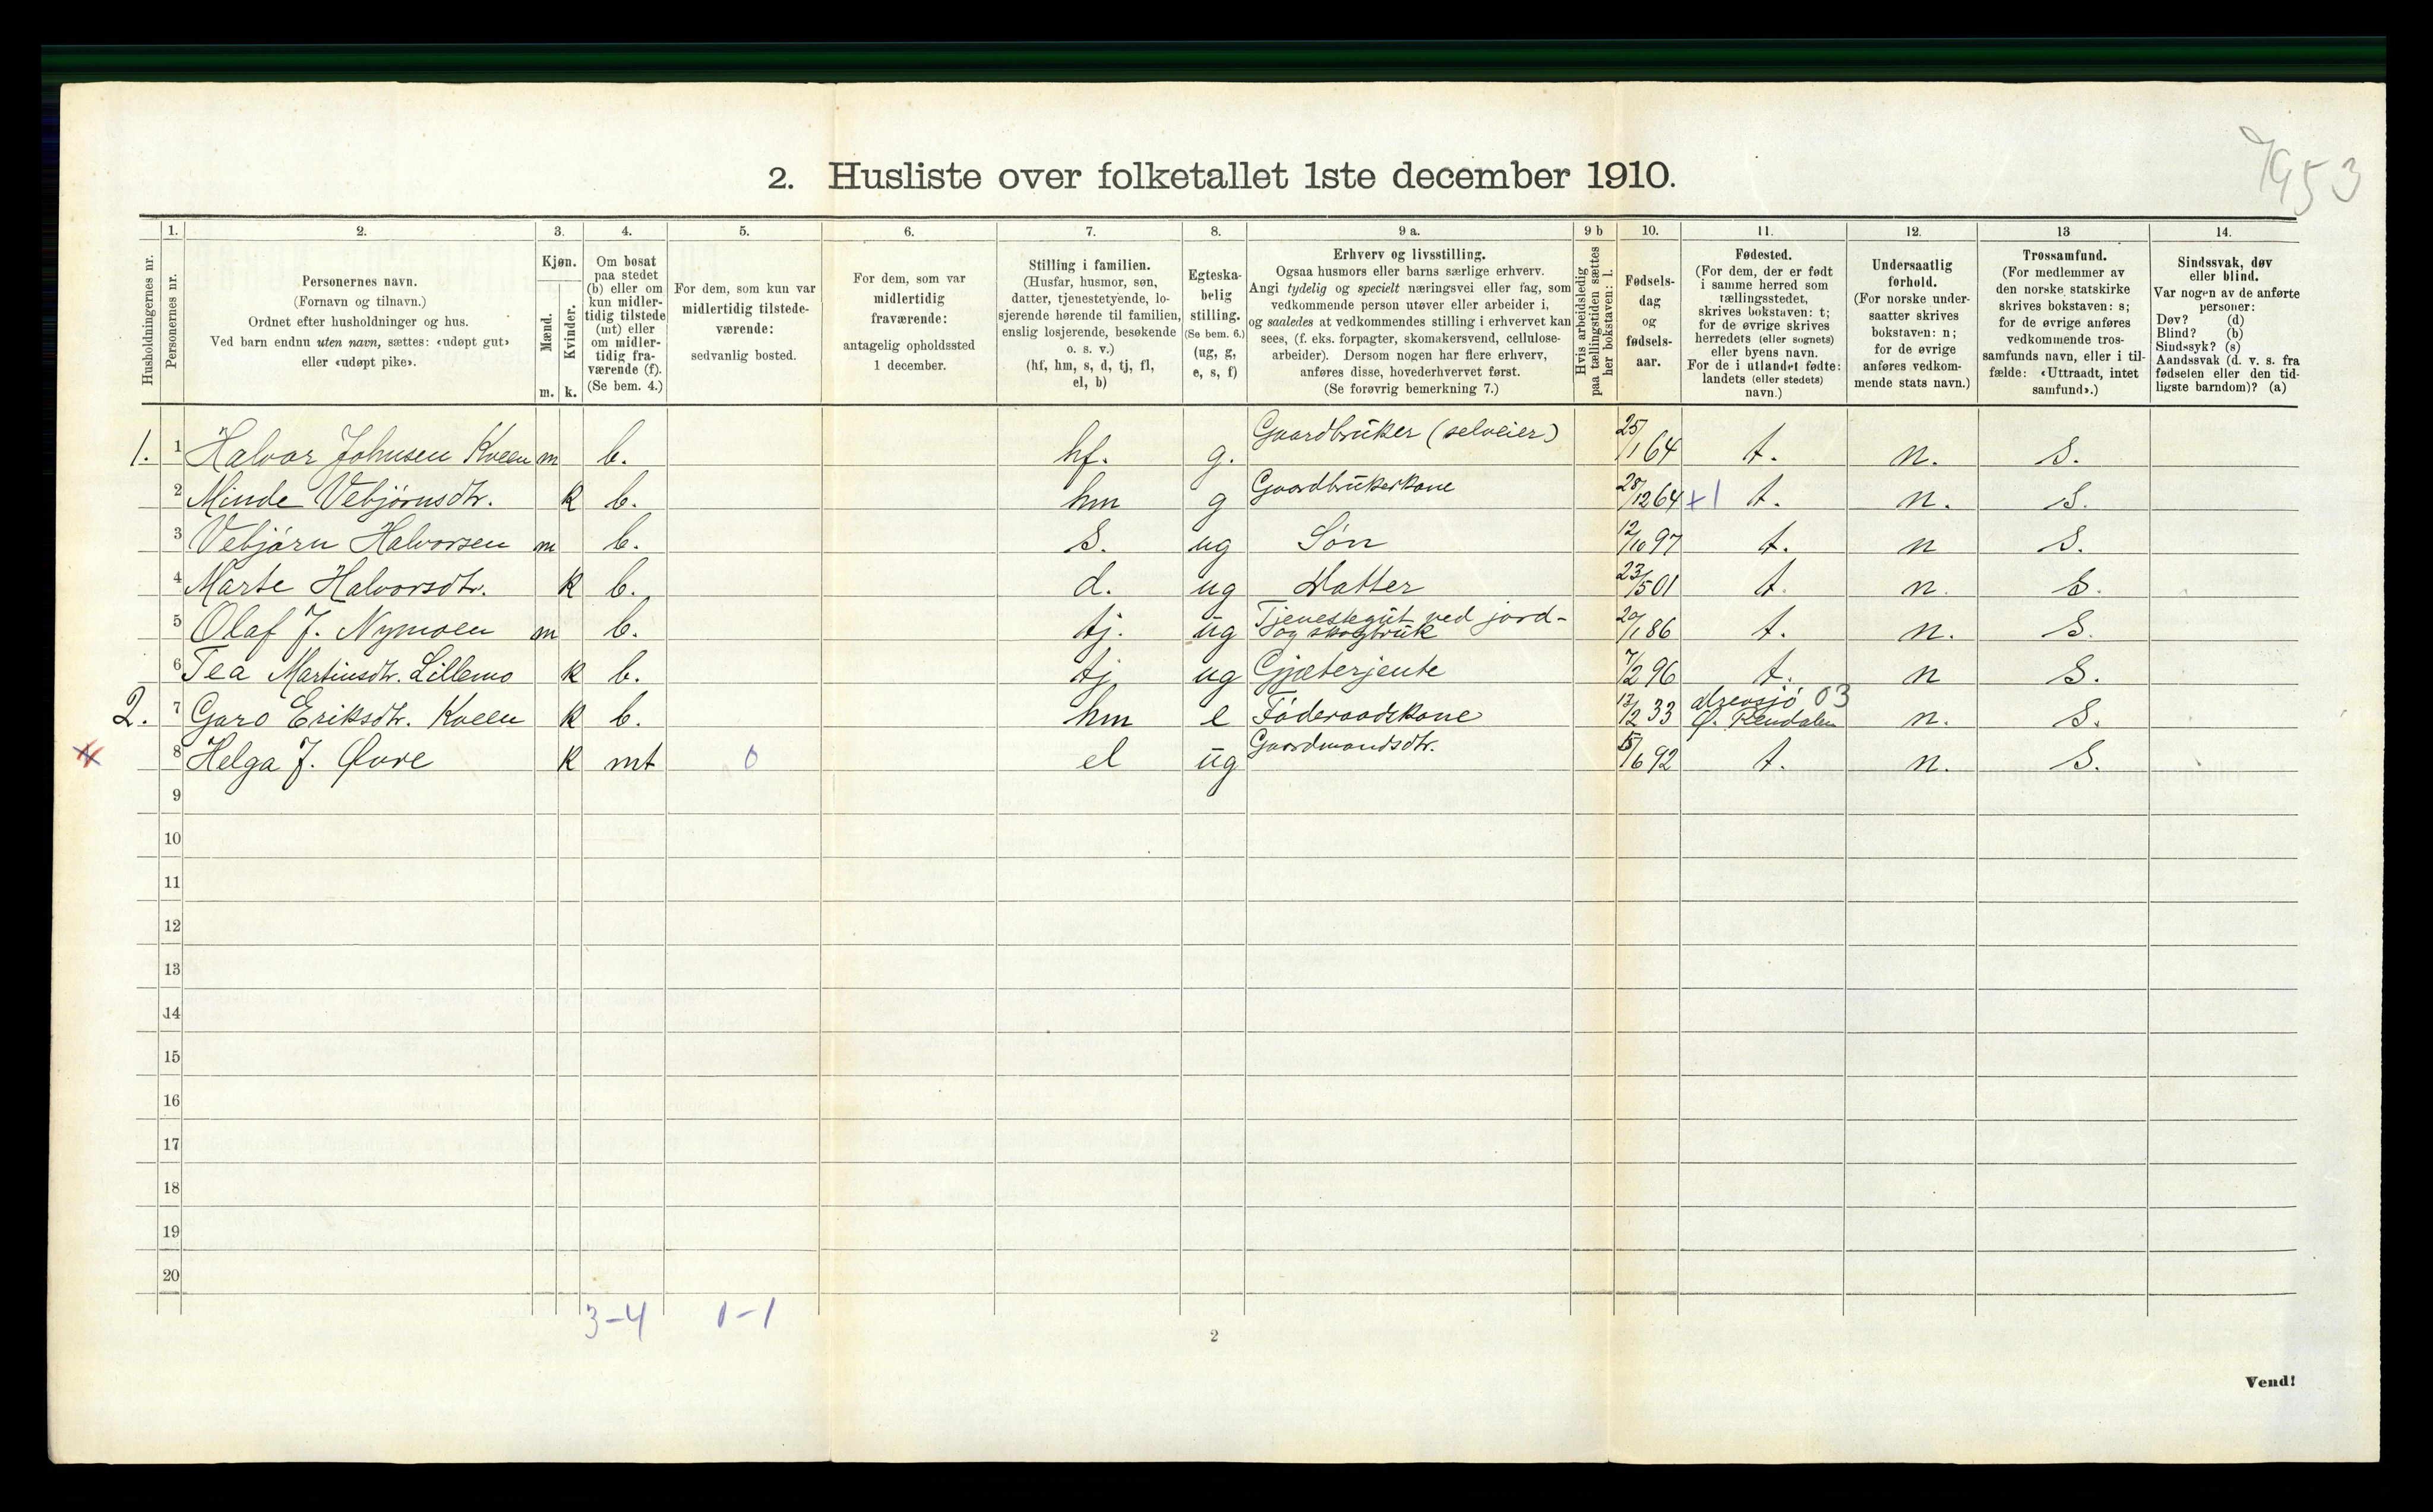 7953
2. Husliste over folketallet 1ste december 1910.
Husholdningernes nr.
1.
Personernes nr.
2.
Personernes navn.
(Fornavn og tilnavn.)
Ordnet efter husholdninger og hus.
Ved barn endnu uten navn, sættes: «udøpt gut»
eller «udøpt pike».
3.
Kjøn.
Mænd.
Kvinder.
m. k.
4.
Om bosat
paa stedet
(b) eller om
kun midler-
tidig tilstede
(mt) eller
om midler-
tidig fra-
værende (f).
(Se bem. 4.)
5.
For dem, som kun var
midlertidig tilstede-
værende:
sedvanlig bosted.
6.
For dem, som var
midlertidig
fraværende:
antagelig opholdssted
1 december.
7.
Stilling i familien.
(Husfar, husmor, søn,
datter, tjenestetyende, lo-
sjerende hørende til familien,
enslig losjerende, besøkende
o. s. v.)
(hf, hm, s, d, tj, fl,
el, b)
8.
Egteska-
belig
stilling.
(Se bem. 6.)
(ug, g,
e, s, f)
9 a.
Erhverv og livsstilling.
Ogsaa husmors eller barns særlige erhverv.
Angi tydelig og specielt næringsvei eller fag, som
vedkommende person utøver eller arbeider i,
og saaledes at vedkommendes stilling i erhvervet kan
sees, (f. eks. forpagter, skomakersvend, cellulose-
arbeider). Dersom nogen har flere erhverv,
anføres disse, hovederhvervet først.
(Se forøvrig bemerkning 7.)
9 b
Hvis arbeidsledig
paa tællingstiden sættes
her bokstaven: l.
10.
Fødsels-
dag
og
fødsels-
aar.
11.
Fødested.
(For dem, der er født
i samme herred som
tællingsstedet,
skrives bokstaven: t;
for de øvrige skrives
herredets (eller sognets)
eller byens navn.
For de i utlandet fødte:
landets (eller stedets)
navn.)
12.
Undersaatlig
forhold.
(For norske under-
saatter skrives
bokstaven: n;
for de øvrige
anføres vedkom-
mende stats navn.)
13
Trossamfund.
(For medlemmer av
den norske statskirke
skrives bokstaven: s;
for de øvrige anføres
vedkommende tros-
samfunds navn, eller i til-
fælde: «Uttraadt, intet
samfund».)
14.
Sindssvak, døv
eller blind.
Var nogen av de anførte
personer:
Døv? (d)
Blind? (b)
Sindssyk? (s)
Aandssvak (d. v. s. fra
fødselen eller den tid-
ligste barndom)? (a)
1. 1 Halvor Johnsen Kveen m b. hf. g. Gaardbruker (selveier) 25/1 64 t. n. s.
2 Minde Vebjørnsdtr. k b. hm g Gaardbrukerkone 28/12 64 +1 t. n. s.
3 Vebjørn Halvorsen m b. s. ug Søn 12/10 97 t. n s.
4 Marte Halvorsdtr. k b. d. ug Datter 23/5 01 t. n. s.
5 Olaf J. Nymoen m b. tj. ug Tjenestegut ved jord-
og skogbruk 20/1 86 t. n. s.
6 Tea Martinsdtr. Lillemo k b. tj ug Gjæterjente 7/2 96 t. n s.
2. 7 Garo Eriksdtr. Kveen k b. hm e Føderaadskone 13/12 33 03
Ø. Rendalen n. s.
8 Helga J. Øvre k mt 0 el ug Gaardmandsdtr. 15/6 92 t. n. s.
9
10
11
12
13
14
15
16
17
18
19
20
3-4 1-1
2
Vend!